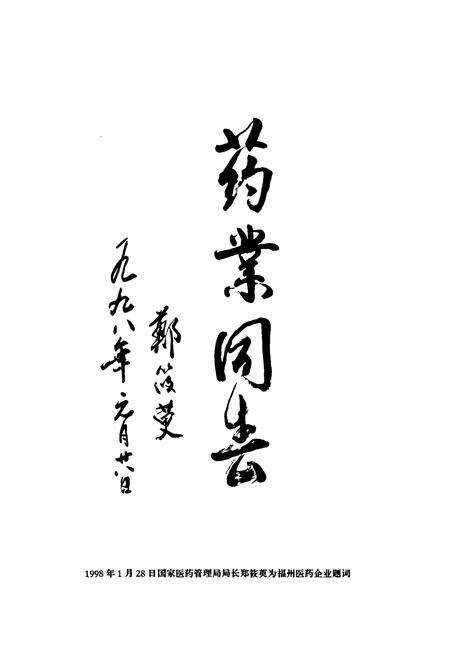 药業同春
鄭筱萸
一九九八年元月廿八日
1998年1月28日国家医药管理局局长郑筱萸为福州医药企业题词